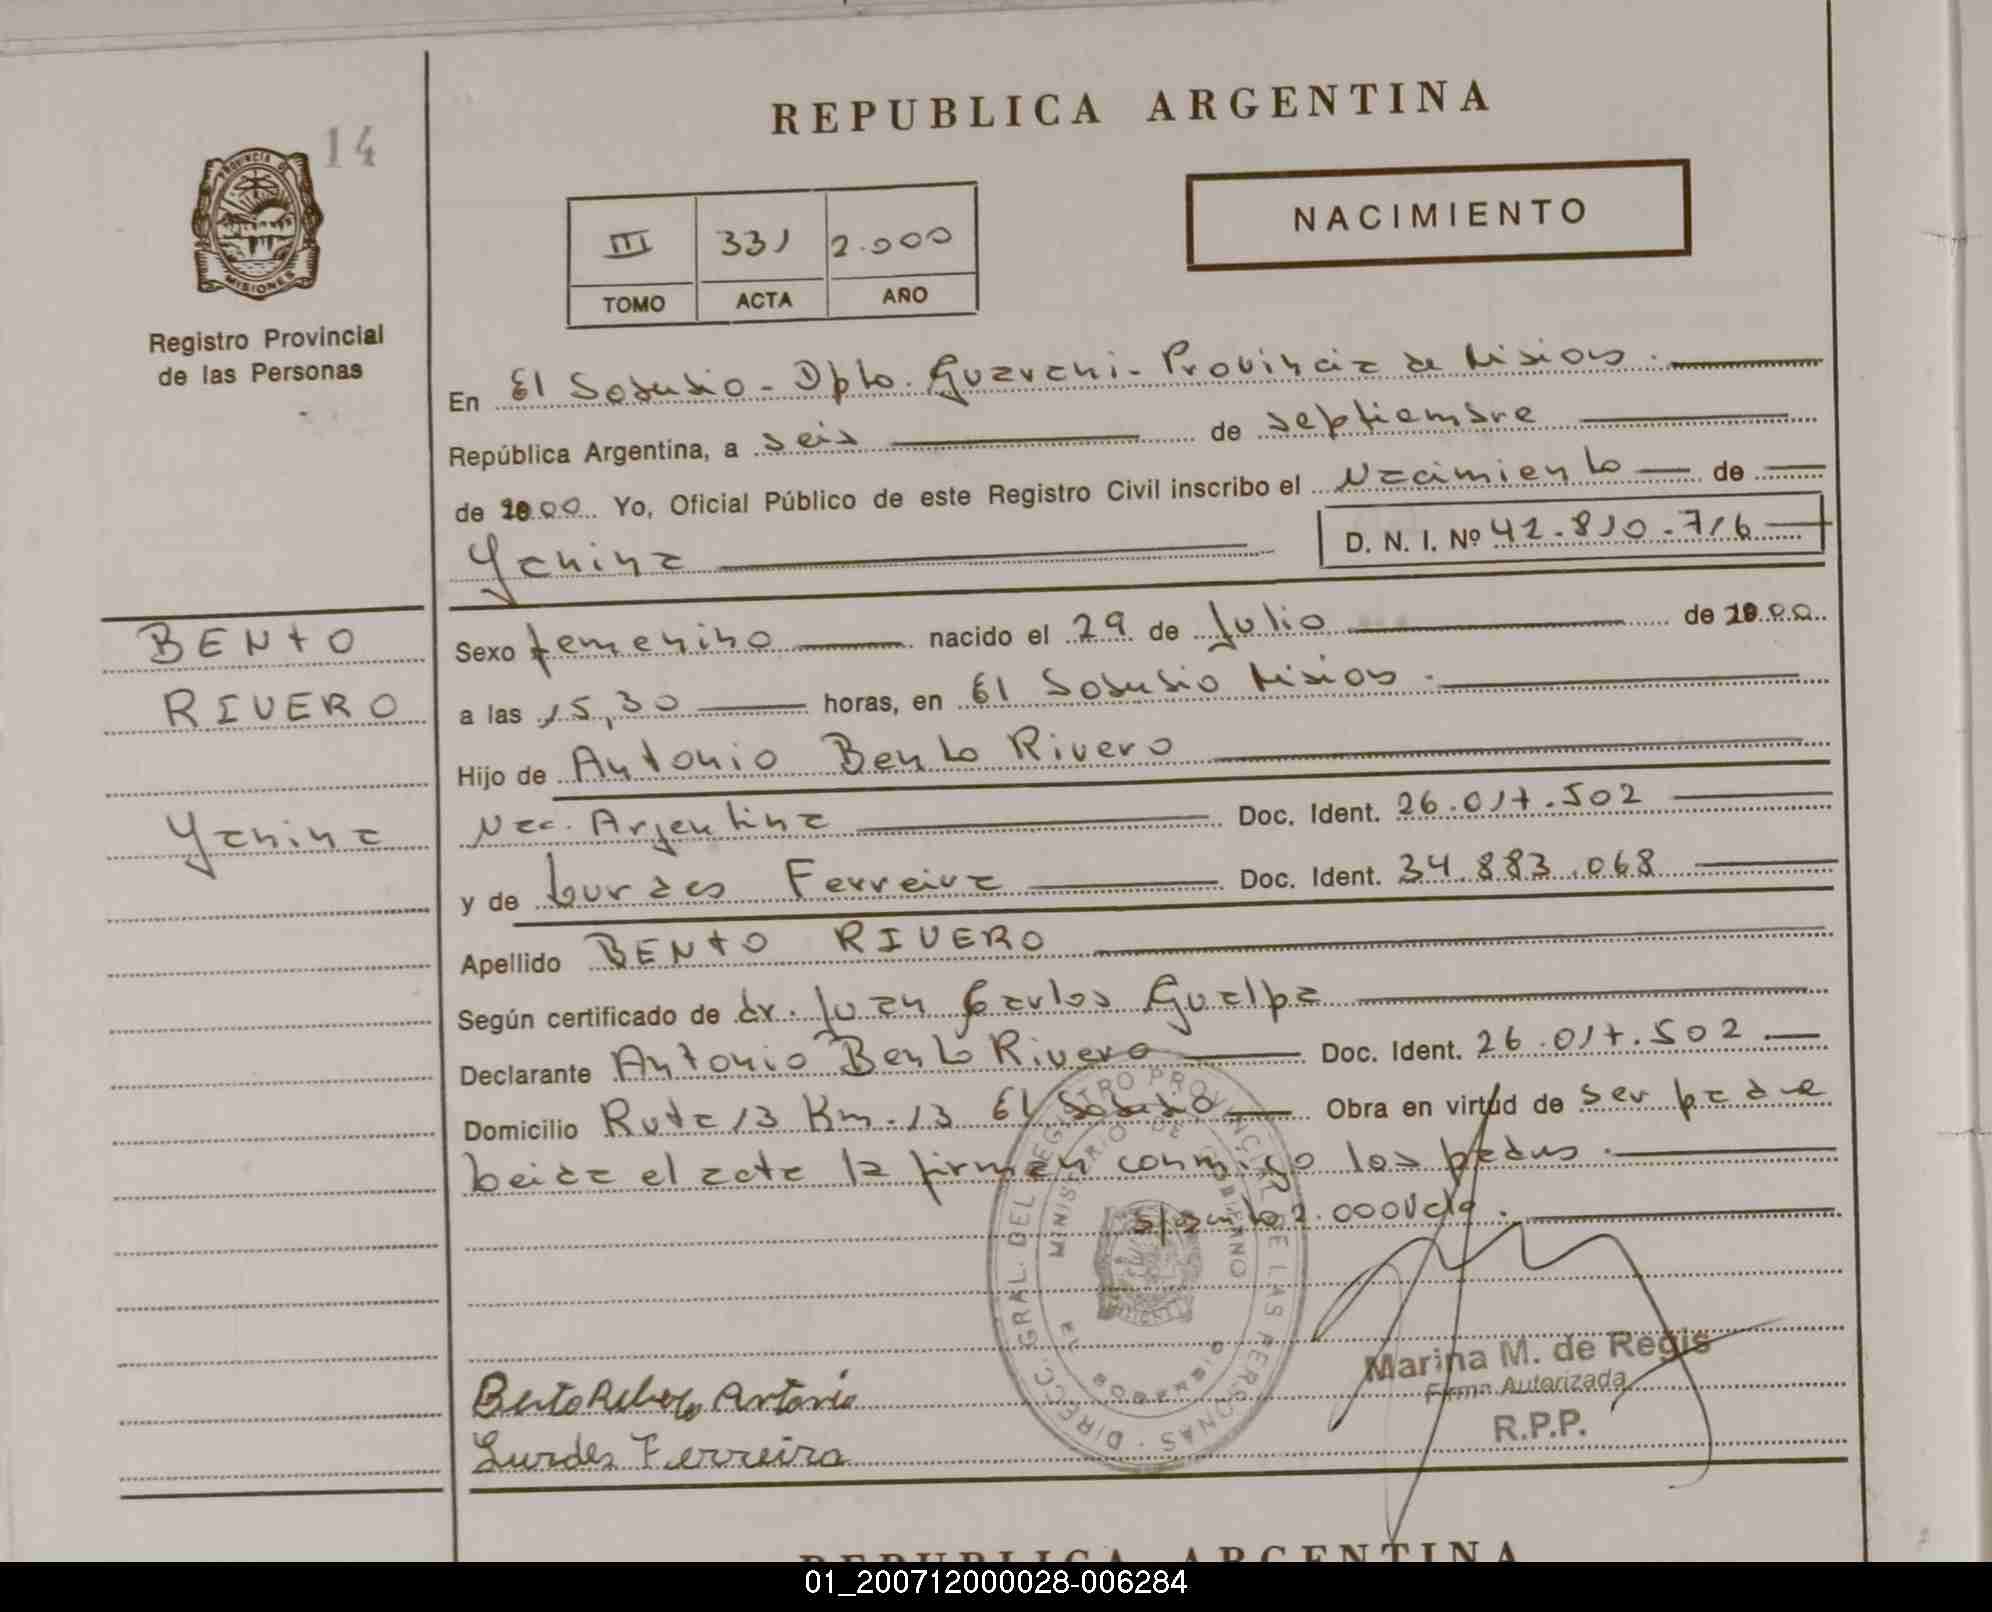 REPUBLICA ARGENTINA
14
PROVINCIA DE
MISIONES
Registro Provincial
de las Personas
NACIMIENTO
III 331 2.000
TOMO ACTA AÑO
En El Soberbio - Dpto. Guarani - Provincia de Misiones.
República Argentina, a seis de septiembre
de 2000 Yo, Oficial Público de este Registro Civil inscribo el Nacimiento de
Yanina
D. N. I. Nº 42.810.716
BENTO
RIVERO
Yanina
Sexo femenino nacido el 29 de Julio de 2000
a las 15,30 horas, en El Soberbio Misiones.
Hijo de Antonio Bento Rivero
Nac. Argentina Doc. Ident. 26.017.502
y de Lurdes Ferreira Doc. Ident. 34.883.068
Apellido BENTO RIVERO
Según certificado de dr. Juan Carlos Gualpa
Declarante Antonio Bento Rivero Doc. Ident. 26.017.502
Domicilio Ruta 13 Km. 13 El Soberbio Obra en virtud de ser padre
Leida el acta la firman conmigo los padres.
2.000 Vale.
DIRECC. GRAL. DEL REGISTRO PROVINCIAL DE LAS PERSONAS
MINISTERIO DE GOBIERNO
EL SOBERBIO
Antonio
Lurdes Ferreira
Marina M. de Regis
Firma Autorizada
R.P.P.
REPUBLICA ARGENTINA
01_200712000028-006284